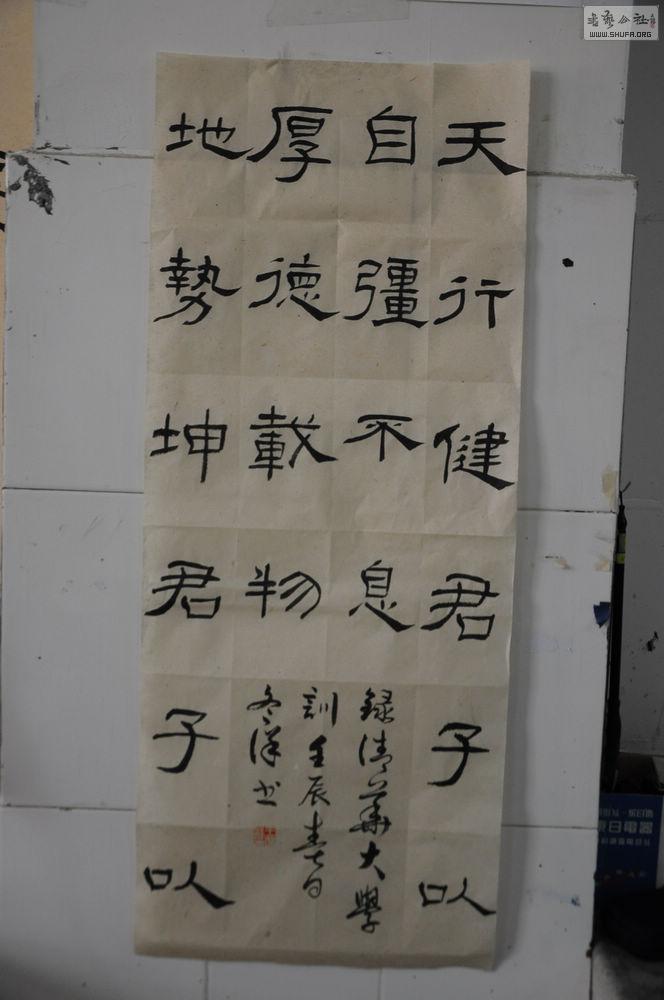 天行健君子以
自彊不息
地勢坤君子以
厚德載物
録清華大學
訓壬辰春日
冬洋书
书藝公社
WWW.SHUFA.ORG
日電器